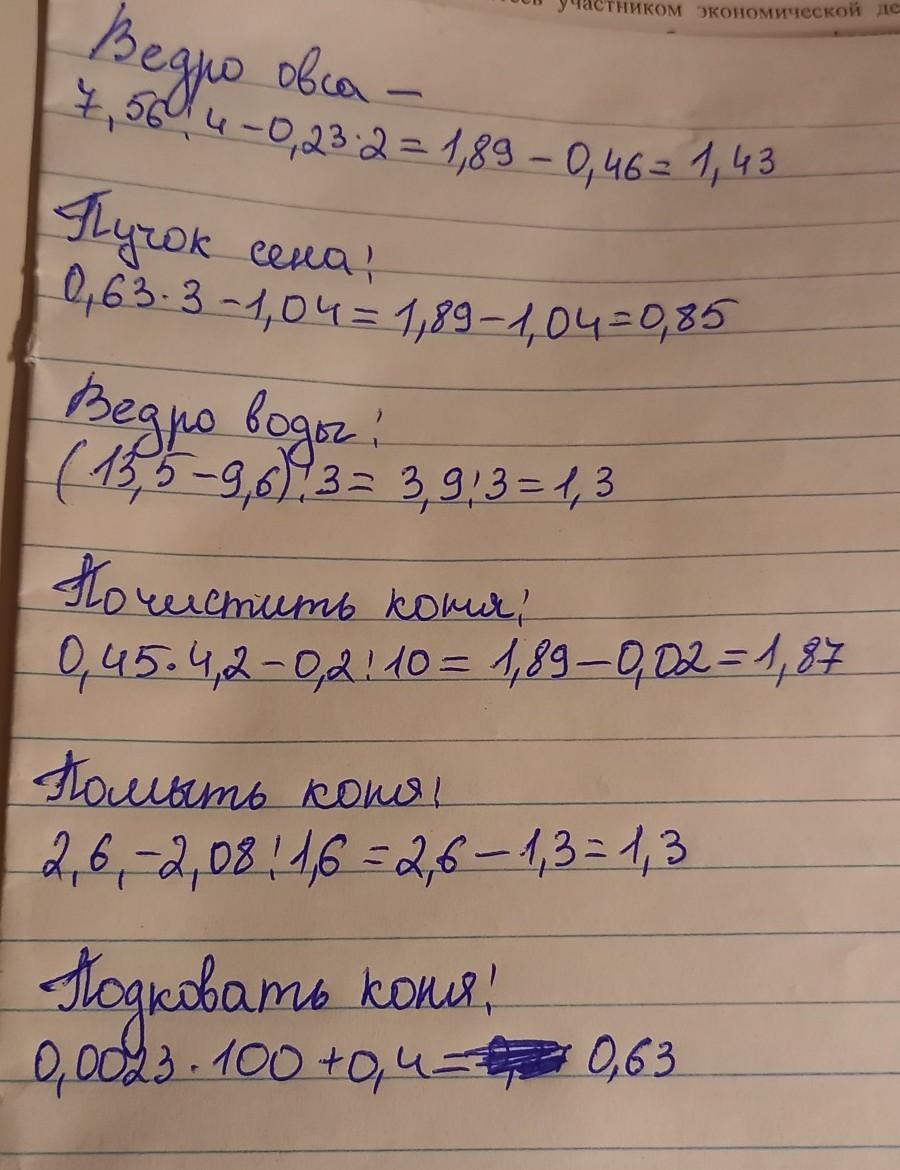 участником экономической де
Ведро овса –
7,56:4-0,23·2=1,89-0,46=1,43
Пучок сена:
0,63·3-1,04=1,89-1,04=0,85
Ведро воды:
(13,5-9,6):3= 3,9:3=1,3
Почистить коня:
0,45·4,2-0,2:10= 1,89-0,02=1,87
Помыть коня:
2,6,-2,08:1,6=2,6-1,3=1,3
Подковать коня:
0,0023·100+0,4= 0,63